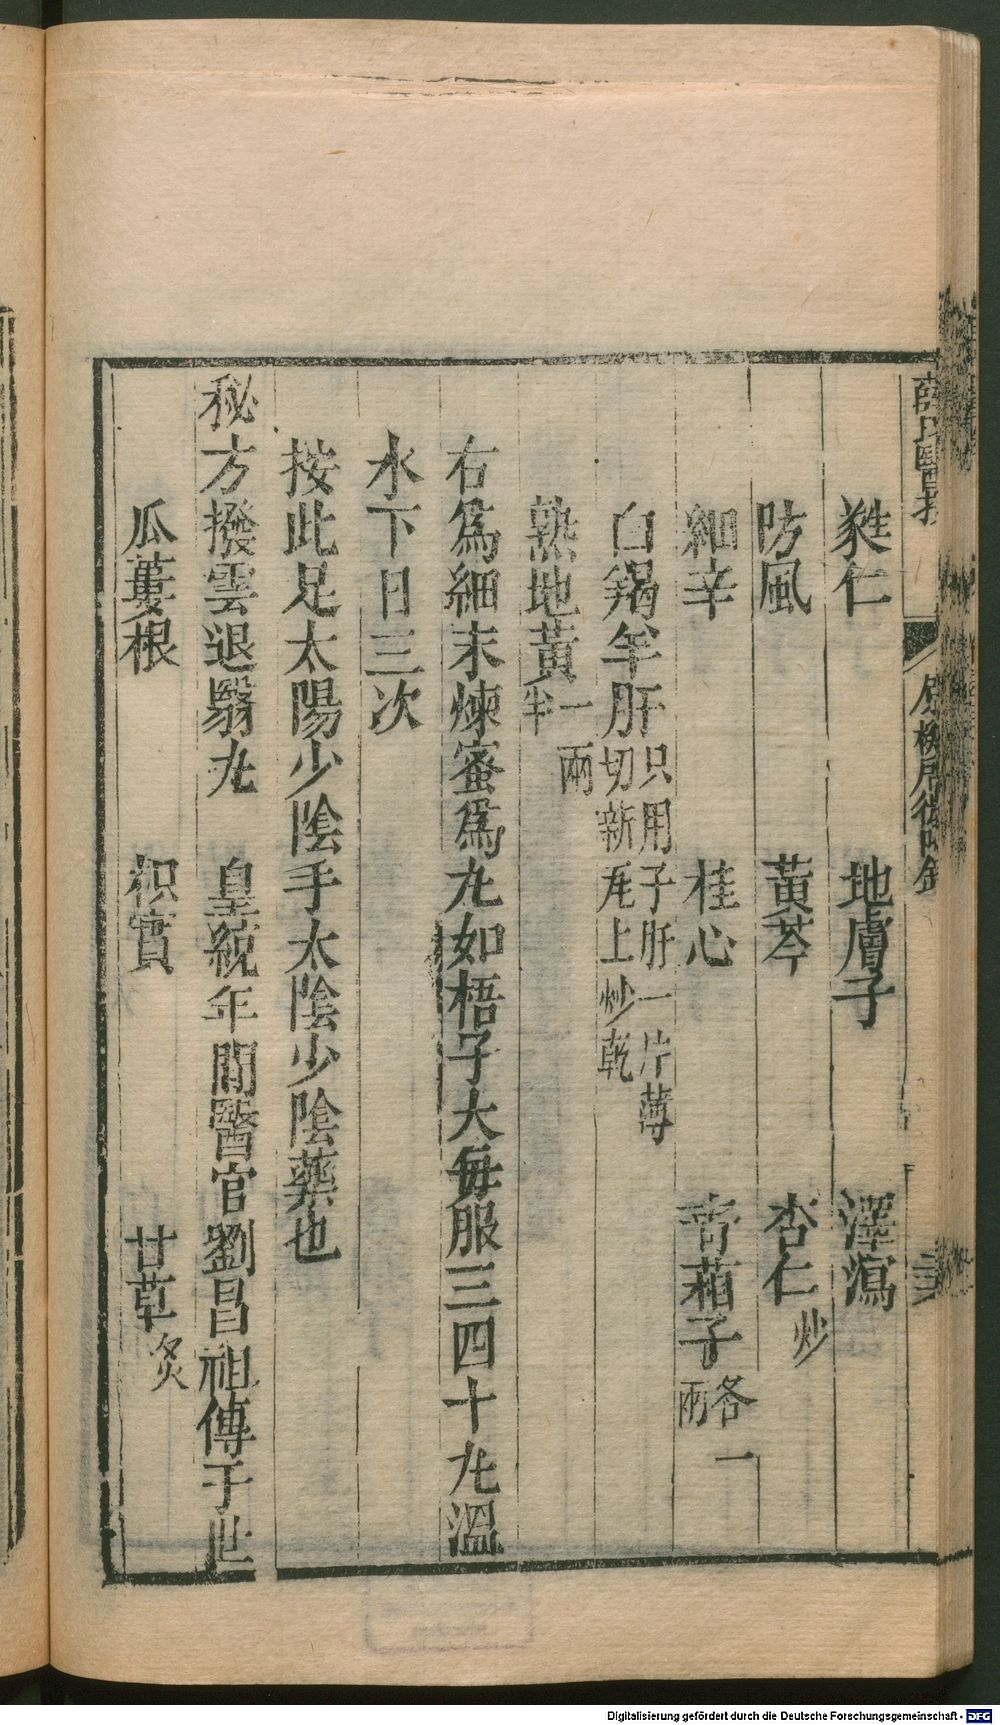 薛氏醫按
原機啓微附錄
蕤仁 地膚子 澤瀉
防風 黃芩 杏仁炒
細辛 桂心 青葙子各一兩
白羯羊肝只用子肝一片薄切新瓦上炒乾
熟地黃一兩半
右爲細末煉蜜爲丸如梧子大每服三四十丸溫
水下日三次
按此足太陽少陰手太陰少陰藥也
秘方撥雲退翳丸 皇統年間醫官劉昌祖傳于世
瓜蔞根 枳實 甘草炙
Digitalisierung gefördert durch die Deutsche Forschungsgemeinschaft - DFG